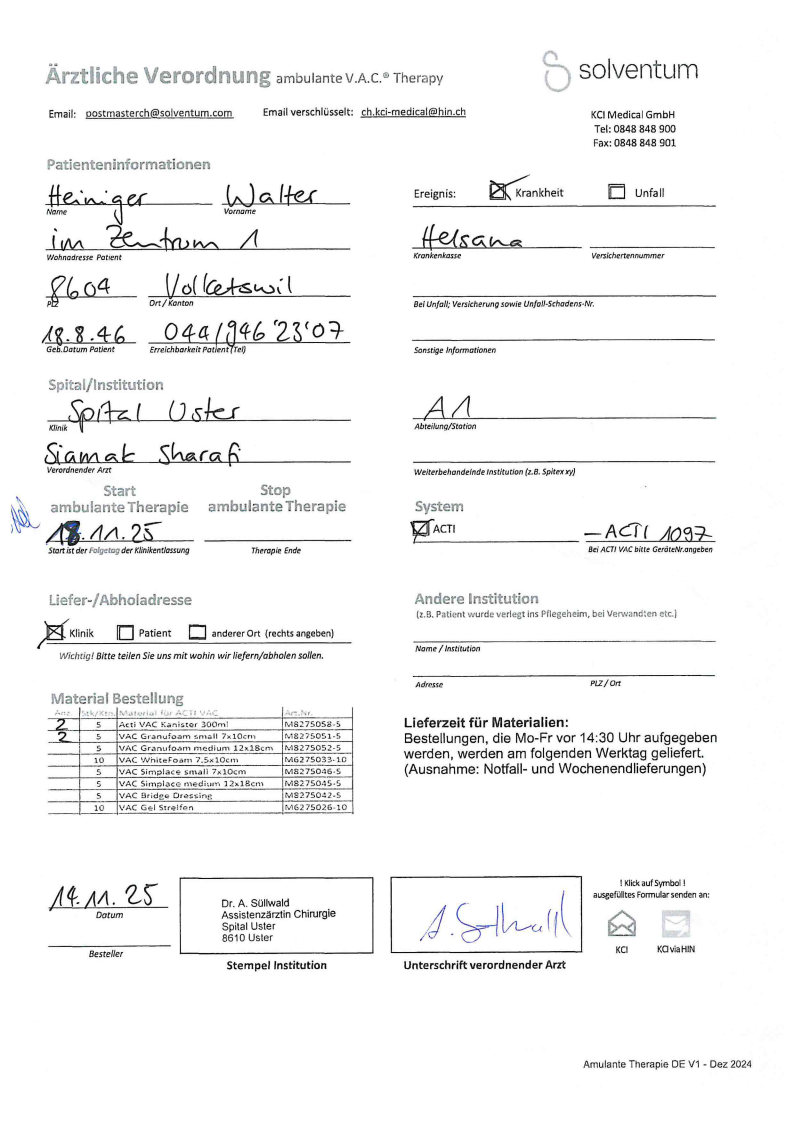 Ärztliche Verordnung ambulante V.A.C.® Therapy
solventum
Email: postmasterch@solventum.com Email verschlüsselt: ch.kci-medical@hin.ch
KCI Medical GmbH
Tel: 0848 848 900
Fax: 0848 848 901
Patienteninformationen
Heiniger Walter
Name Vorname
Ereignis: Krankheit Unfall
im Zentrum 1
Wohnadresse Patient
Helsana
Krankenkasse Versichertennummer
8604 Volketswil
PLZ Ort / Kanton
Bei Unfall; Versicherung sowie Unfall-Schadens-Nr.
18.8.46 044/946'23'07
Geb.Datum Patient Erreichbarkeit Patient (Tel)
Sonstige Informationen
Spital/Institution
Spital Uster
Klinik
A1
Abteilung/Station
Siamak Sharafi
Verordnender Arzt
Weiterbehandelnde Institution (z.B. Spitex xy)
Start ambulante Therapie
Stop ambulante Therapie
System
18.11.25
Start ist der Folgetag der Klinikentlassung Therapie Ende
ACTI – ACTI 1097
Bei ACTI VAC bitte GeräteNr.angeben
Liefer-/Abholadresse
Klinik Patient anderer Ort (rechts angeben)
Wichtig! Bitte teilen Sie uns mit wohin wir liefern/abholen sollen.
Andere Institution
(z.B. Patient wurde verlegt ins Pflegeheim, bei Verwandten etc.)
Name / Institution
Adresse PLZ / Ort
Material Bestellung
Anz. Stk/Ktn. Material für ACTI VAC Art.Nr.
2 5 Acti VAC Kanister 300ml M8275058-5
2 5 VAC Granufoam small 7x10cm M8275051-5
5 VAC Granufoam medium 12x18cm M8275052-5
10 VAC WhiteFoam 7.5x10cm M6275033-10
5 VAC Simplace small 7x10cm M8275046-5
5 VAC Simplace medium 12x18cm M8275045-5
5 VAC Bridge Dressing M8275042-5
10 VAC Gel Streifen M6275026-10
Lieferzeit für Materialien:
Bestellungen, die Mo-Fr vor 14:30 Uhr aufgegeben
werden, werden am folgenden Werktag geliefert.
(Ausnahme: Notfall- und Wochenendlieferungen)
14.11.25
Datum
Besteller
Dr. A. Süllwald
Assistenzärztin Chirurgie
Spital Uster
8610 Uster
Stempel Institution
A. Süllwald
Unterschrift verordnender Arzt
! Klick auf Symbol !
ausgefülltes Formular senden an:
KCI KCI via HIN
Amulante Therapie DE V1 - Dez 2024